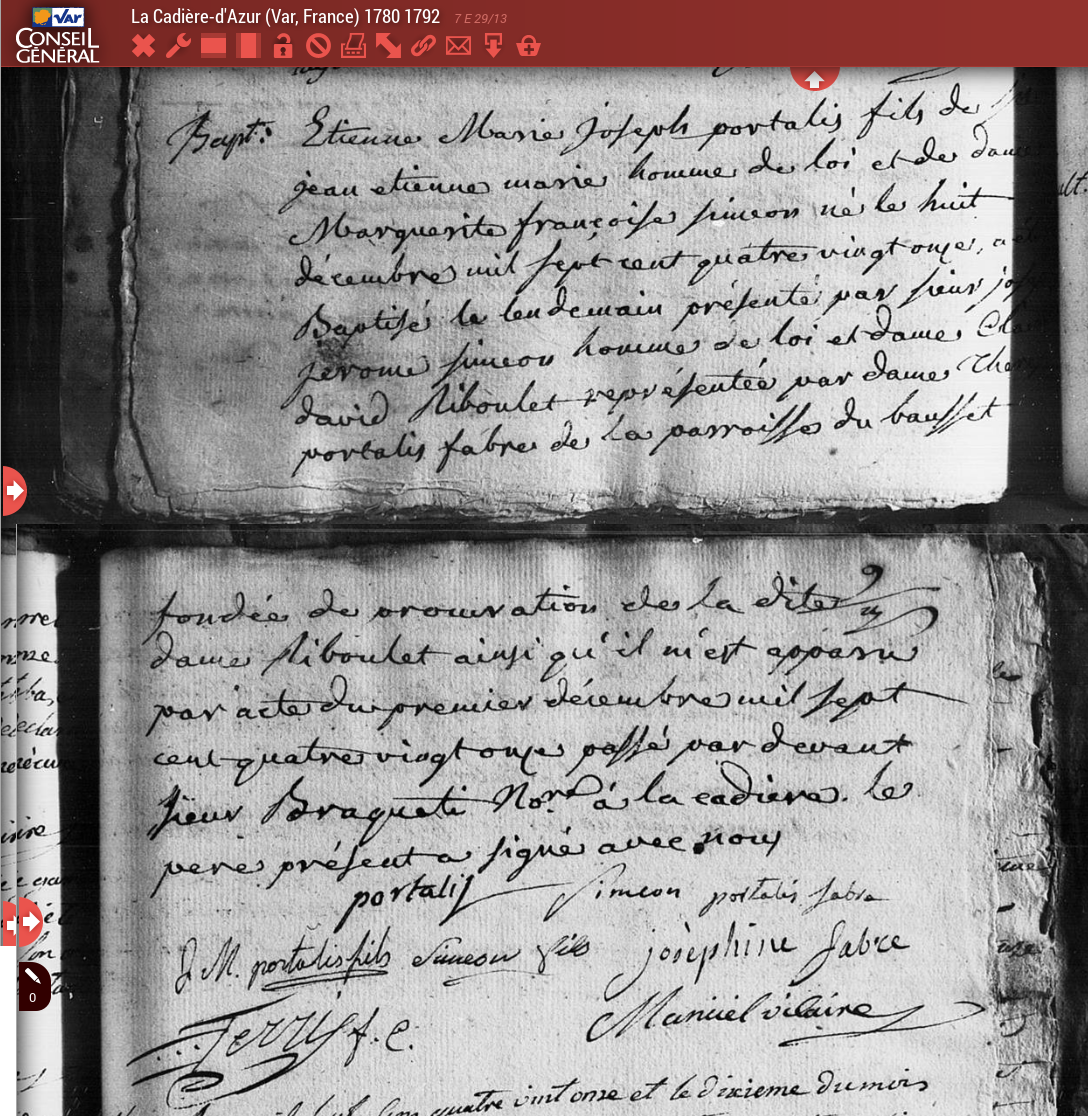 VAR
CONSEIL
GÉNÉRAL
La Cadière-d'Azur (Var, France) 1780 1792 7 E 29/13
Bapt: Etienne Marie joseph portalis fils de
jean etienne marie homme de loi et de dame
Marguerite françoise simeon né le huit
décembre mil sept cent quatre vingt onze, a été
Baptisé le lendemain présenté par sieur jos
jerome simeon homme de loi et dame
david Riboulet représentée par dame
portalis fabre de la parroisse du bausset
fondée de procuration de la dite
dame Riboulet ainsi qu'il m'est apparu
par acte du premier décembre mil sept
cent quatre vingt onze passé par devant
sieur Braqueti Nore à la cadiere. le
pere présent a signé avec nous
portalis simeon portalis fabre
J. M. portalis fils Simeon fils josephine fabre
ferris f. c. Manuel vicaire
quatre vint onze et le dixieme du mois
0